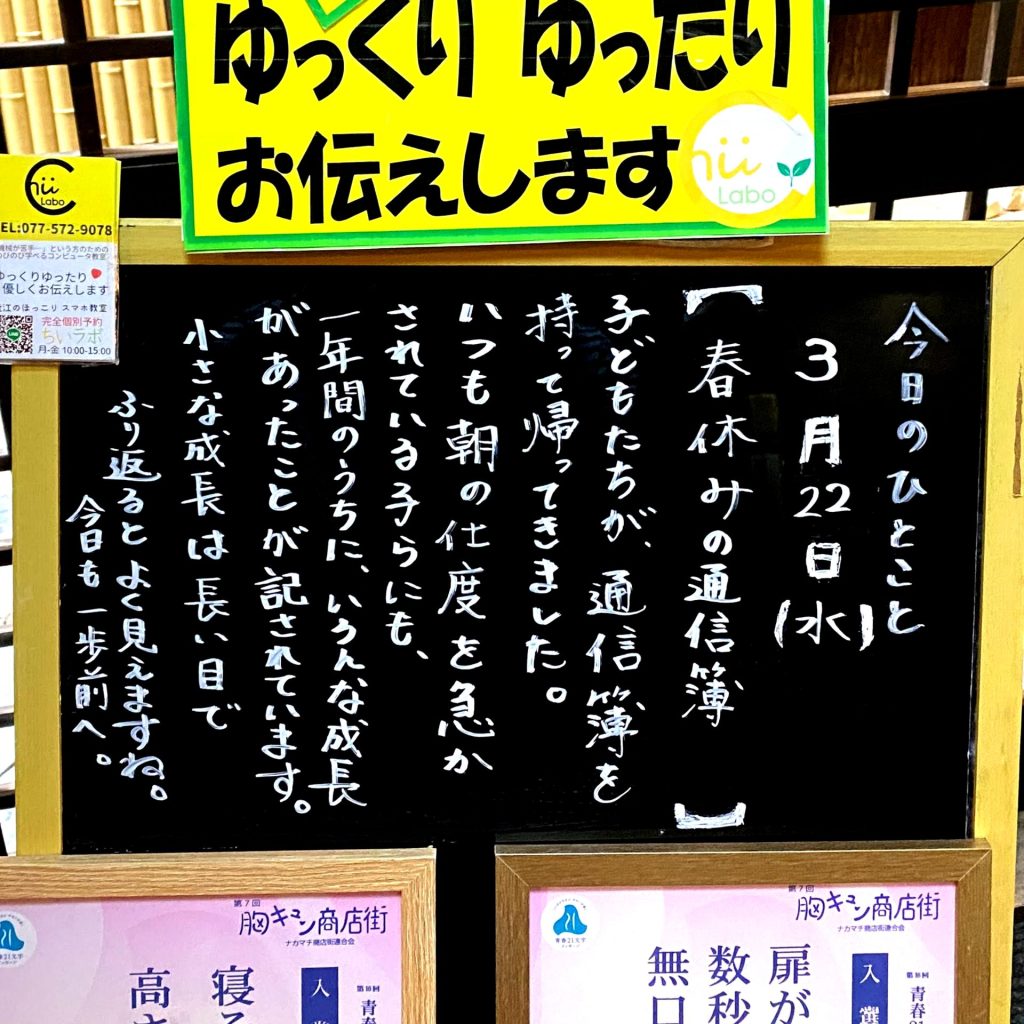 ゆっくり ゆったり
お伝えします
Labo
Labo
TEL:077-572-9078
のびのび学べるコンピュータ教室
ゆっくりゆったり
優しくお伝えします
近江のほっこり スマホ教室
完全個別予約
ちいラボ
月-金 10:00-15:00
今日のひとこと
3月22日(水)
【春休みの通信簿】
子どもたちが、通信簿を
持って帰ってきました。
いつも朝の仕度を急か
されている子らにも、
一年間のうちに、いろんな成長
があったことが記されています。
小さな成長は長い目で
ふり返るとよく見えますね。
今日も一歩前へ。
第7回
胸キュン商店街
ナカマチ商店街連合会
青春21文字
入
青春
寝
高
第7回
胸キュン商店街
ナカマチ商店街連合会
青春21文字
入選
青春
扉が
数秒
無口